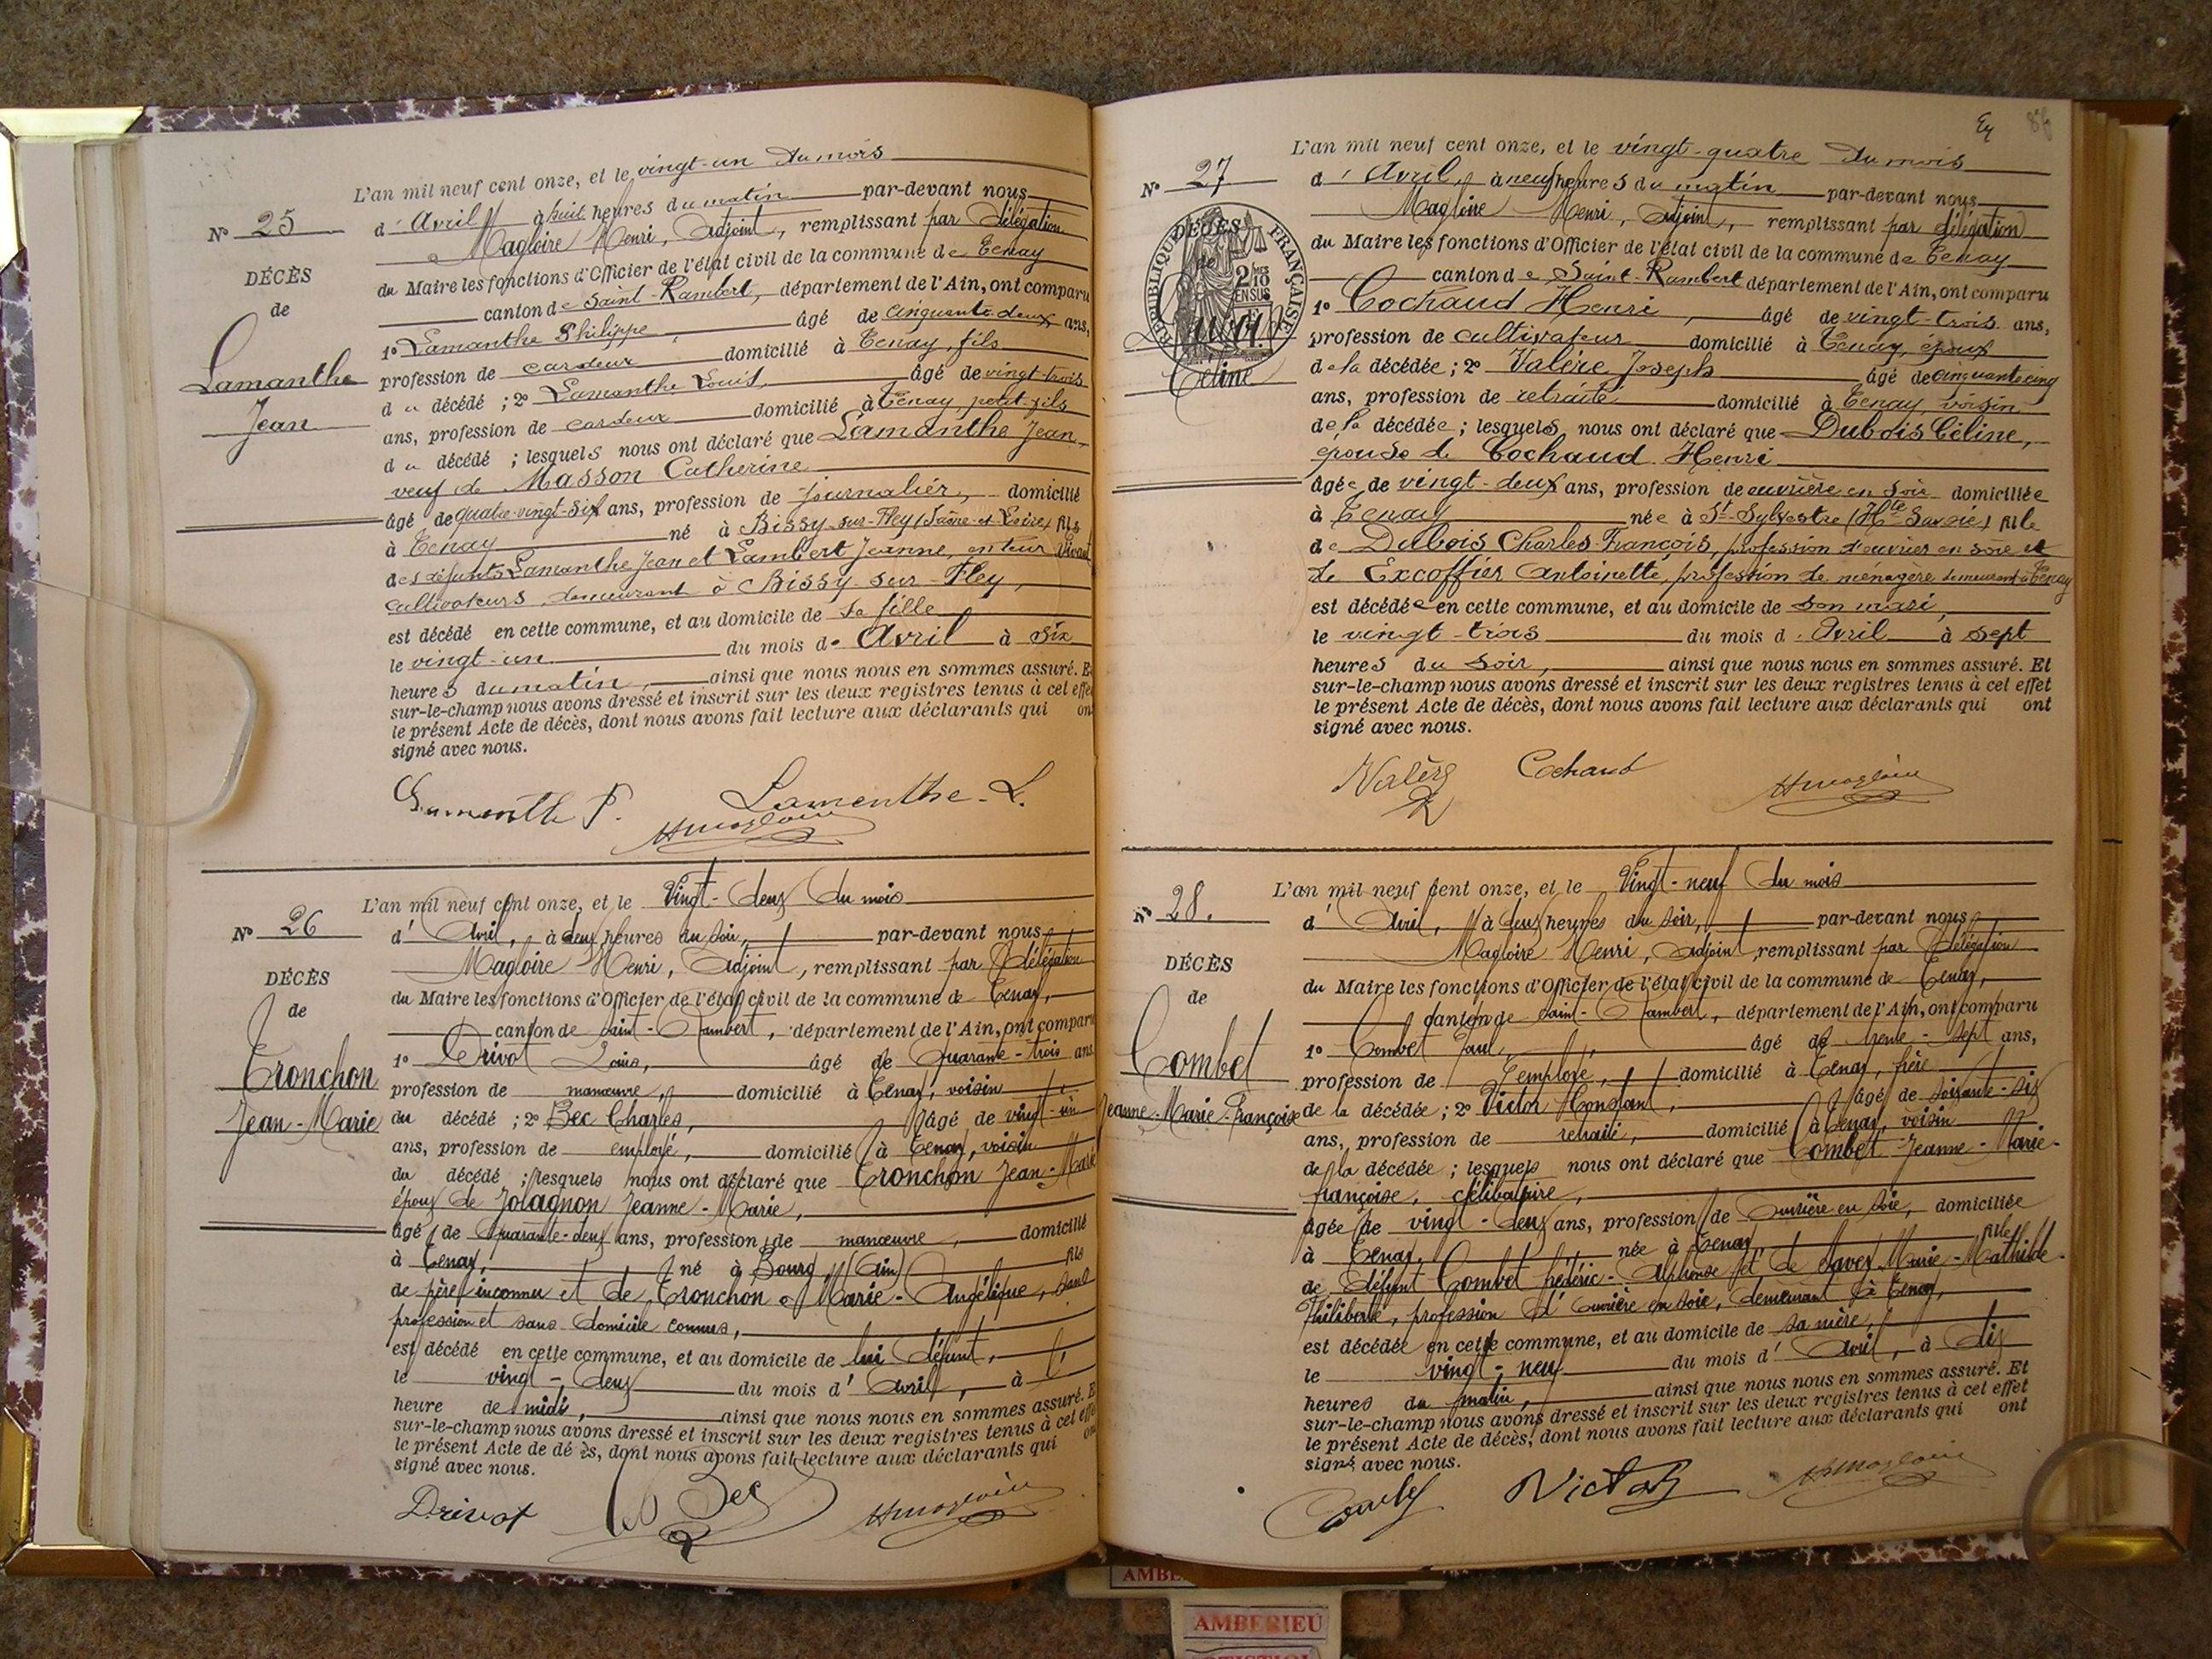 L'an mil neuf cent onze, et le vingt-un du mois
N° 25
d'Avril à huit heures du matin par-devant nous
Magloire Henri, Adjoint, remplissant par délégation
du Maire les fonctions d'Officier de l'état civil de la commune de Tenay
canton de Saint-Rambert, département de l'Ain, ont comparu
DÉCÈS
de
Lamanthe
Jean
1° Lamanthe Philippe, âgé de cinquante-deux ans,
profession de cardeur domicilié à Tenay, fils
du décédé ; 2° Lamanthe Louis, âgé de vingt-trois
ans, profession de cardeur domicilié à Tenay, petit-fils
du décédé ; lesquels nous ont déclaré que Lamanthe Jean,
veuf de Masson Catherine
âgé de quatre-vingt-six ans, profession de journalier, domicilié
à Tenay né à Bissy-sur-Fley (Saône-et-Loire) fils
des défunts Lamanthe Jean et Lambert Jeanne, en leur vivant
cultivateurs, demeurant à Bissy-sur-Fley,
est décédé en cette commune, et au domicile de sa fille
le vingt-un du mois de Avril à six
heures du matin, ainsi que nous nous en sommes assuré. Et
sur-le-champ nous avons dressé et inscrit sur les deux registres tenus à cet effet
le présent Acte de décès, dont nous avons fait lecture aux déclarants qui ont
signé avec nous.
Lamenthe P. Lamenthe-L.
HMagloire
L'an mil neuf cent onze, et le Vingt-deux du mois
N° 26
d'Avril, à deux heures du soir, par-devant nous
Magloire Henri, Adjoint, remplissant par délégation
du Maire les fonctions d'Officier de l'état civil de la commune de Tenay,
canton de Saint-Rambert, département de l'Ain, ont comparu
DÉCÈS
de
Tronchon
Jean-Marie
1° Drivot Louis, âgé de Quarante-trois ans
profession de manœuvre, domicilié à Tenay, voisin
du décédé ; 2° Bec Charles, âgé de vingt-un
ans, profession de employé, domicilié à Tenay, voisin
du décédé ; lesquels nous ont déclaré que Tronchon Jean-Marie
époux de Jolagnon Jeanne-Marie,
âgé de Quarante-deux ans, profession de manœuvre, domicilié
à Tenay, né à Bourg, (Ain) fils
de père inconnu et de Tronchon Marie-Angélique, sans
profession et sans domicile connus,
est décédé en cette commune, et au domicile de lui défunt,
le vingt-deux du mois d'Avril, à l'
heure de midi, ainsi que nous nous en sommes assuré. Et
sur-le-champ nous avons dressé et inscrit sur les deux registres tenus à cet effet
le présent Acte de décès, dont nous avons fait lecture aux déclarants qui ont
signé avec nous.
Drivot Bec HMagloire
L'an mil neuf cent onze, et le vingt-quatre du mois
N° 27
d'Avril, à neuf heures du matin par-devant nous
Magloire Henri, Adjoint, remplissant par délégation
du Maire les fonctions d'Officier de l'état civil de la commune de Tenay
canton de Saint-Rambert département de l'Ain, ont comparu
DÉCÈS
de
RÉPUBLIQUE FRANÇAISE
2/10 EN SUS
Céline
1° Cochaud Henri, âgé de vingt-trois ans,
profession de cultivateur domicilié à Tenay, époux
de la décédée ; 2° Valère Joseph âgé de cinquante-cinq
ans, profession de retraité domicilié à Tenay, voisin
de la décédée ; lesquels nous ont déclaré que Dubois Céline,
épouse de Cochaud Henri
âgée de vingt-deux ans, profession de ouvrière en soie domiciliée
à Tenay née à St-Sylvestre (Hte Savoie) fille
de Dubois Charles-François, profession d'ouvrier en soie et
de Excoffier Antoinette, profession de ménagère demeurant à Tenay
est décédée en cette commune, et au domicile de son mari,
le vingt-trois du mois d'Avril à sept
heures du soir, ainsi que nous nous en sommes assuré. Et
sur-le-champ nous avons dressé et inscrit sur les deux registres tenus à cet effet
le présent Acte de décès, dont nous avons fait lecture aux déclarants qui ont
signé avec nous.
Valère Cochaud HMagloire
L'an mil neuf cent onze, et le Vingt-neuf du mois
N° 28.
d'Avril, à deux heures du soir, par-devant nous,
Magloire Henri, Adjoint, remplissant par délégation
du Maire les fonctions d'Officier de l'état civil de la commune de Tenay,
canton de Saint-Rambert, département de l'Ain, ont comparu
DÉCÈS
de
Combet
Jeanne-Marie-Françoise
1° Combet Paul, âgé de trente-sept ans,
profession de employé, domicilié à Tenay, frère
de la décédée ; 2° Victor Constant, âgé de soixante-six
ans, profession de retraité, domicilié à Tenay, voisin
de la décédée ; lesquels nous ont déclaré que Combet Jeanne-Marie-
Françoise, célibataire,
âgée de vingt-deux ans, profession de Ouvrière en soie, domiciliée
à Tenay, née à Tenay, fille
de défunt Combet Frédéric-Alphonse et de Marie-Mathilde-
Philiberte, profession d'ouvrière en soie, demeurant à Tenay,
est décédée en cette commune, et au domicile de sa mère,
le vingt-neuf du mois d'Avril, à dix
heures du matin, ainsi que nous nous en sommes assuré. Et
sur-le-champ nous avons dressé et inscrit sur les deux registres tenus à cet effet
le présent Acte de décès, dont nous avons fait lecture aux déclarants qui ont
signé avec nous.
Combet Victor HMagloire
AMBERIEU